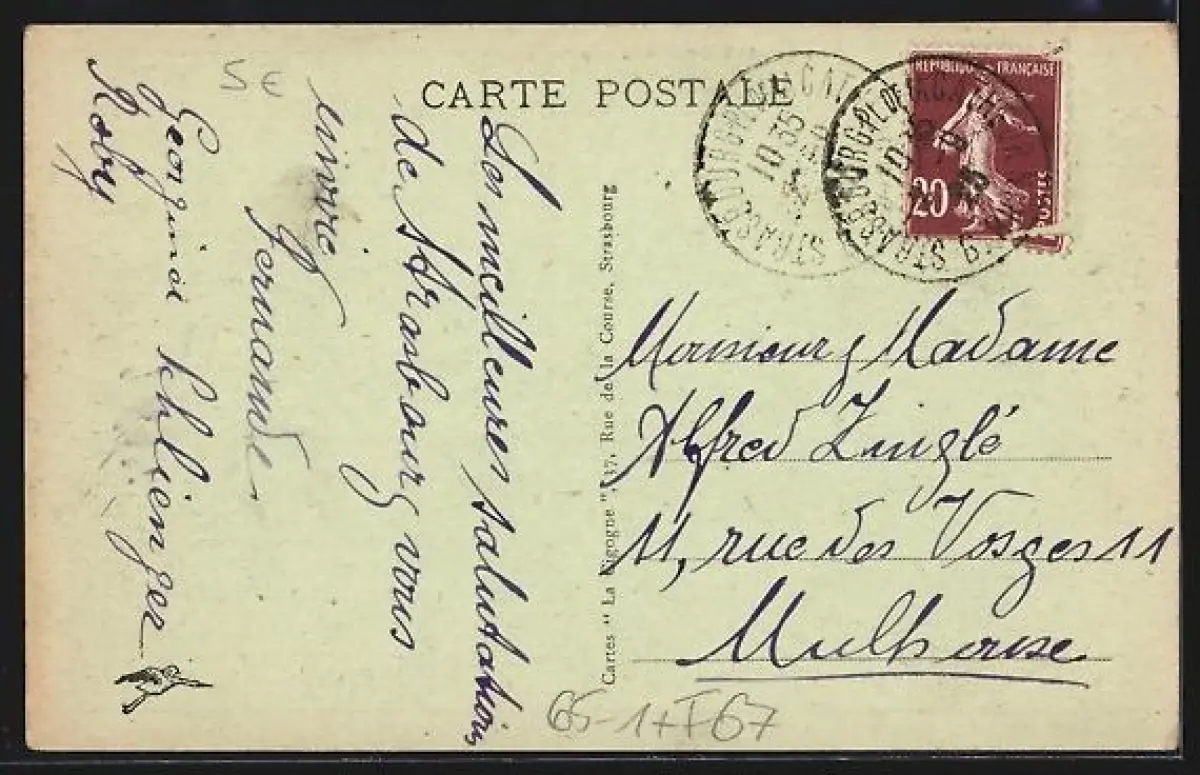 5€
CARTE POSTALE
Les meilleures salutations
de Strasbourg vous
envoie
Fernande
Georgine Schlienger
Roby
Cartes " La Cigogne ", 37, Rue de la Course, Strasbourg
REPUBLIQUE FRANÇAISE
20
POSTES
STRASBOURG
10 35
STRASBOURG PL. DE
10
Monsieur & Madame
Alfred Zinglé
11, rue des Vosges 11
Mulhouse